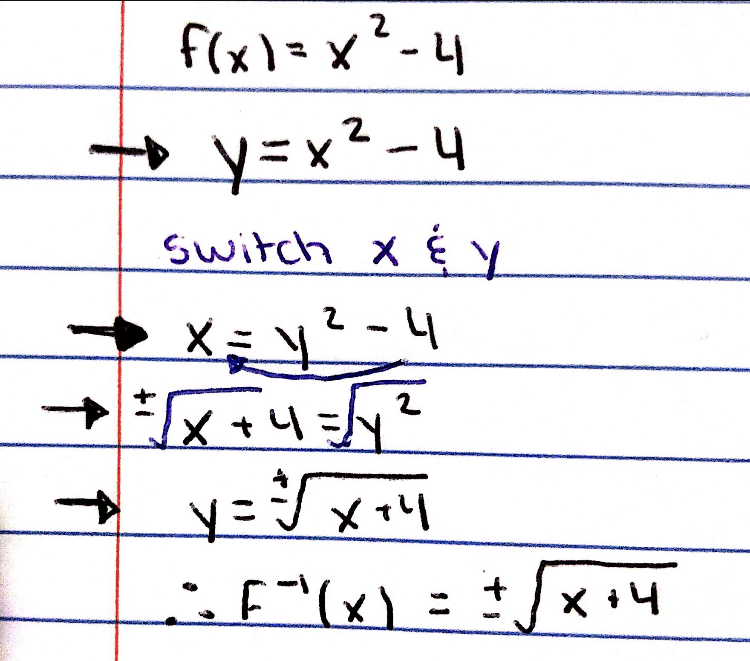 f(x) = x² - 4
→ y = x² - 4
switch x & y
→ x = y² - 4
→ ±√x + 4 = √y²
→ y = ±√x+4
∴ F⁻¹(x) = ±√x+4